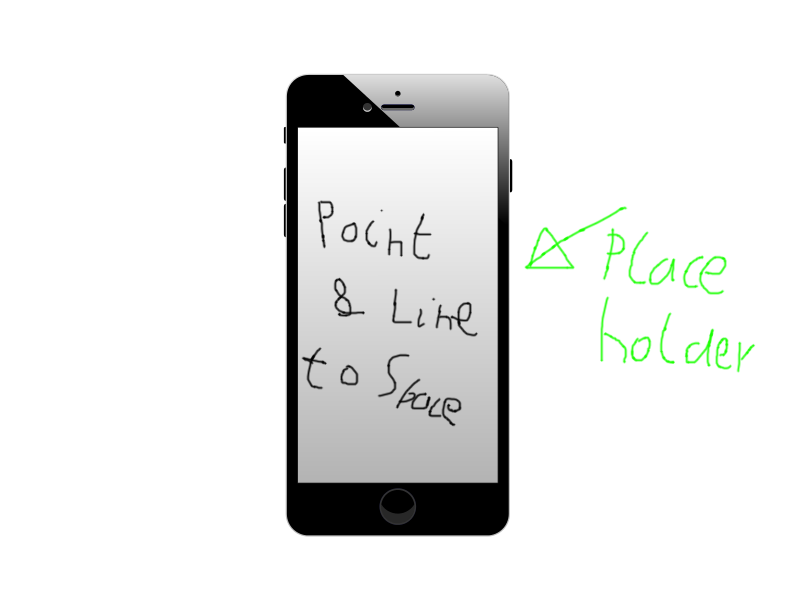 Point
& Line
to Space
Place
holder